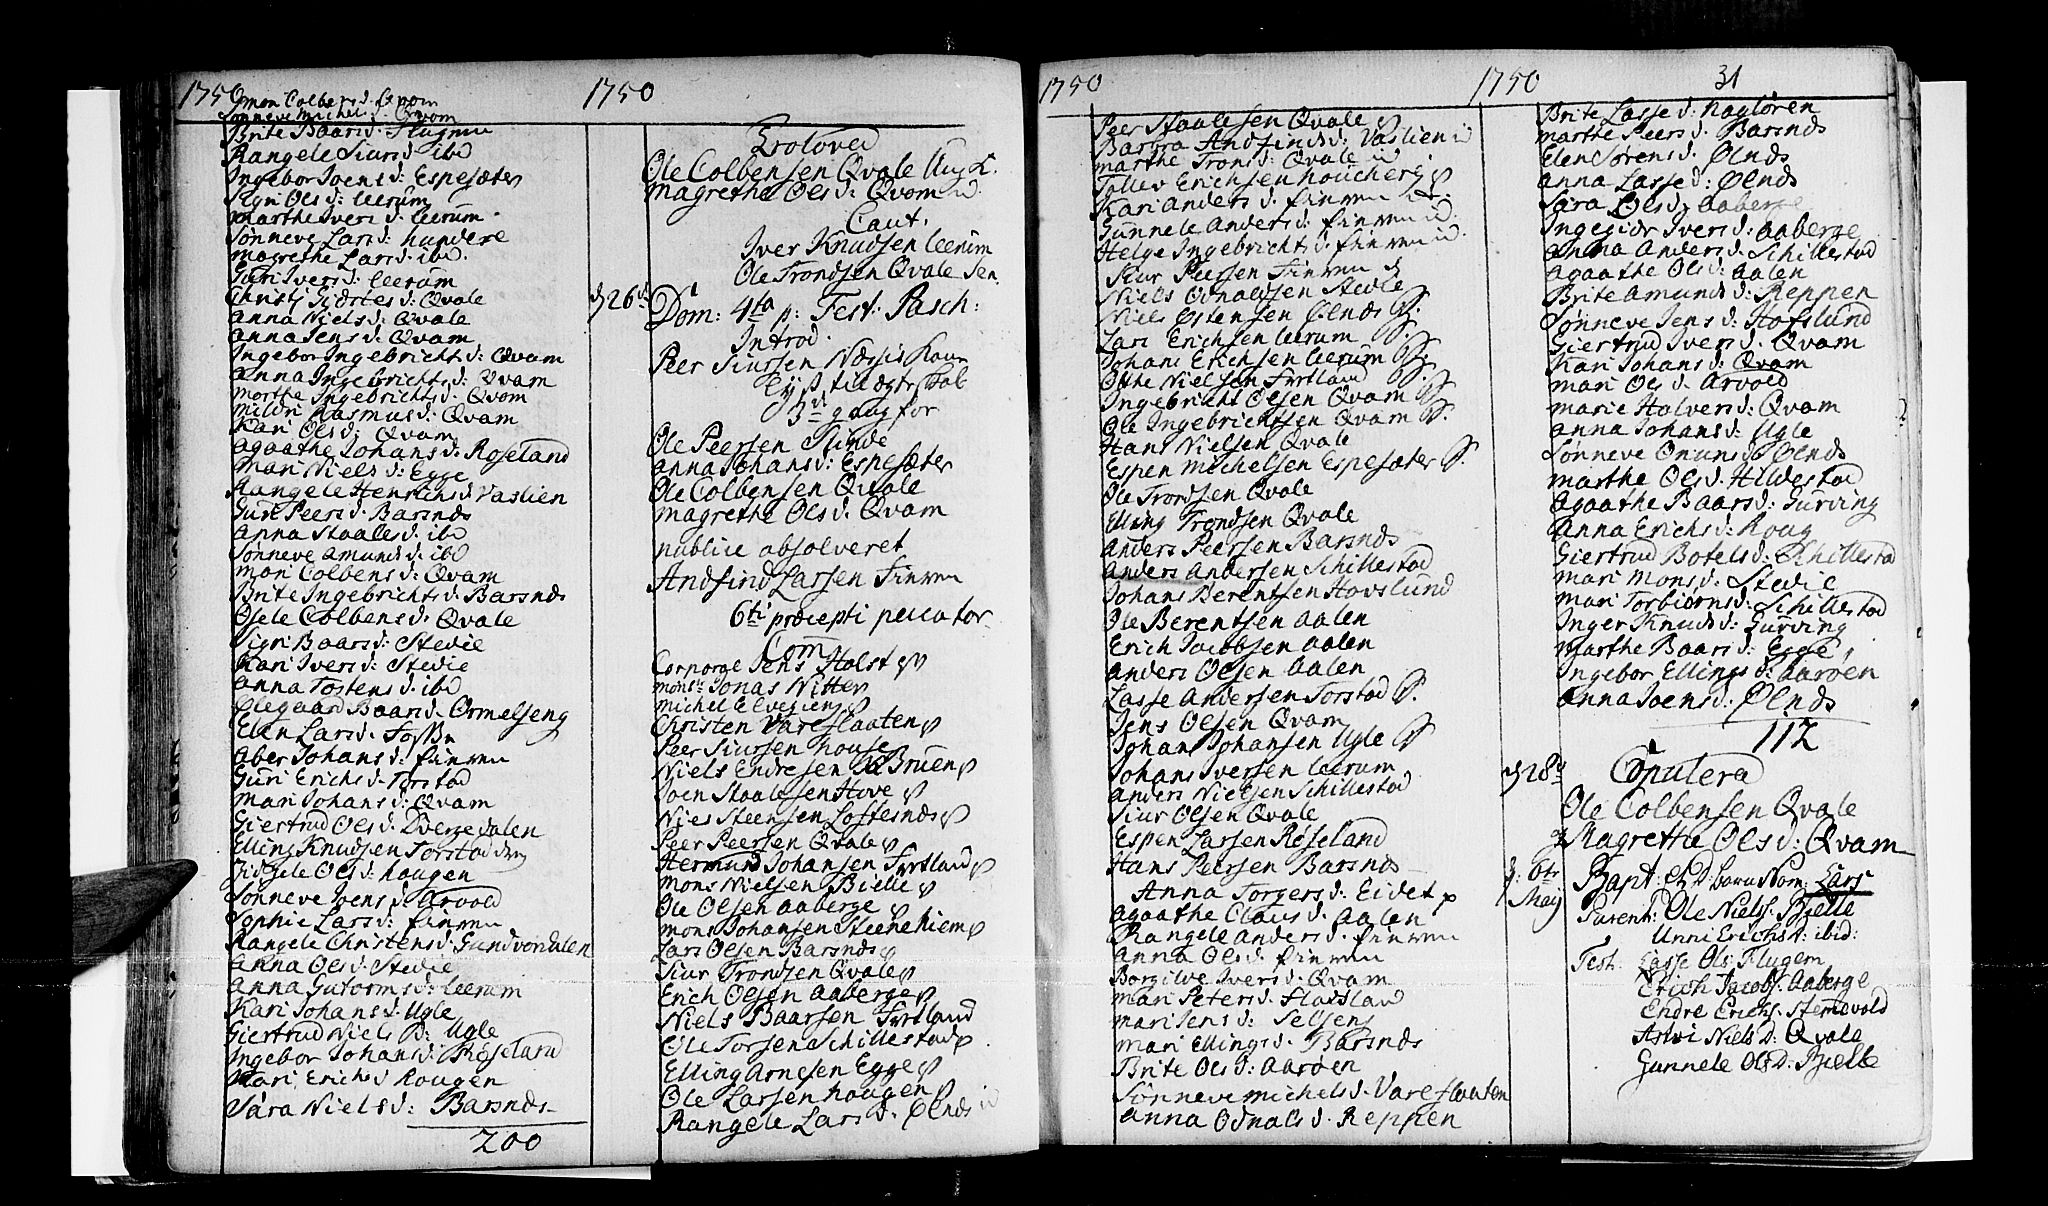 1750
1750
Lønneve Michels d: Qvam
Brite Baars d: Flugum
Rangele Siurs d: ibd
Ingebor Joens d: Espesæter
Sigri Ols d: Leerum
Marthe Ivers d. Leerum
Sønneve Lars d: Hundere
Magrethe Lars d. ibd.
Guri Ivers d: Leerum
Christi Giørtes d: Qvale
Anna Niels d: Qvale
Anna Jens d: Qvam
Ingebor Ingebricht d: Qvam
Anna Ingebrichts d: Qvam
Marthe Ingebrichts d. Qvam
Mildri Rasmus d: Qvam
Kari Ols d: Qvam
Agaathe Johans d: Røseland
Mari Niels d: Egge
Rangele Henrichs d: Vaslien
Guri Peers d: Barsnds
Anna Staales d: ibd
Sønneve Amunds d: ibd
Mari Colbens d: Qvam
Brite Ingebrichts d: Barsnds
Osele Colbens d: Qvale
Sigri Baars d: Stedie
Kari Ivers d: Stedie
Anna Tostens d: ibd
Olegaard Baars d. Ormelseng
Elen Lars d.
Aber Johans d: Finven
Guri Erichs d. Torstad
Mari Johans d: Qvam
Giertrud Ols d. Dvergedalen
Elling Knudsen Torstad
Ols d: Hougen
Sønneve Joens d: Arvold
Sophie Lars d: Finven
Rangele Christens d. Gundvordalen
Anna Ols d. Stedie
Anna Gutorms d: Leerum
Kari Johans d: Ugle
Giertrud Niels D: Ugle
Ingebor Johans d: Røseland
Mari Erichs d Hougen
Sara Niels d: Barsnds
200
Troloved
Ole Colbensen Qvale Ung K.
Magrethe Ols d: Qvam id.
Caut.
Iver Knudsen Leerum
Ole Trondsen Qvale Sen.
d 26d
Dom: 4ta p: Fest: Pasch:
Introd.
Peer Siursen Kone
Lyst til ægteskab
3d gang for
Ole Peersen Slinde
Anna Johans d: Espesæter
Ole Colbensen Qvale
Magrethe Ols d. Qvam
publice absolveret
Andfind Larsen Finven
6ti præcepti peccator
Com
Corporge Jens Holst
mons. Jonas Nitter
Michel Elvegien
Christen Vareflaaten
Peer Siursen House
Niels Endresen Bruen
Joen Staalesen Hove
Niels Steensen Loftesnds
Peer Peersen Qvale
Hermund Johansen Fyrtland
Mons Nielsen Bielle
Ole Olsen Aaberge
Mons Johansen Steenehiem
Lars Olsen Barsnds
Siur Trondsen Qvale
Erich Olsen Aaberge
Niels Baarsen Fyrtland
Ole Torsen Schillestad
Elling Arnesen Egge
Ole Larsen Hougen
Rangele Lars d. Ølnds id
1750
1750
31
Peer Staalesen Qvale
Barbra Andfinds d: Vaslien id
Marthe Trons d: Qvale id
Tollev Erichsen Houcherig
Kari Anders d. Finven id.
Gunnele Anders d. Finven id.
Helge Ingebricht d. Finven id.
Siur Peersen Finven
Niels Odnaldsen Stedie
Niels Estensen Ølnds S.
Lars Erichsen Leerum S.
Johans Erichsen Leerum S.
Otte Nielsen Fyrtland S.
Ingebricht Olsen Qvam S.
Ole Ingebrichtsen Qvam S.
Hans Nielsen Qvale
Espen Michelsen Espesæter S.
Ole Trondsen Qvale
Elling Trondsen Qvale
Anders Peersen Barsnds
Anders Andersen Schillestad
Johans Berentsen Hovslund
Ole Berentsen Aalen
Erich Jacobsen Aalen
Anders Olsen Aalen
Lasse Andersen Torstad S.
Jens Olsen Qvam
Johan Johansen Ugle S
Johans Iversen Leerum
Anders Nielsen Schillestad
Siur Olsen Qvale
Espen Larsen Røseland
Hans Peersen Barsnds
Anna Torgers d: Eidet
Agaathe Claus d. Aalen
Rangele Anders d. Finven
Anna Ols d: Finven
Borgilde Ivers d: Qvam
Mari Peters d. Fladsland
Mari Jens d: Selseng
Mari Ellings d: Barsnds
Brite Ols d: Aarøen
Sønneve Michels d. Vareflaaten
Anna Odnals d. Reppen
Brite Lasse d: Nagløren
Marthe Peers d. Barsnds
Elen Sørens d. Ølnds
Anna Lasse d: Ølnds
Sara Ols d; Aaberge
Ingegiør Ivers d: Aaberge
Anna Anders d: Schillestad
Agaathe Ols d: Aalen
Brite Amunds d: Reppen
Sønneve Jens d: Hofslund
Giertrud Ivers d: Qvam
Kari Johans d: Qvam
Mari Ols d. Arvold
Marie Halvers d: Qvam
Anna Johans d: Ugle
Sønneve Omunds d Ølnds
Marthe Ols d: Hildestad
Agaathe Baars d: Gurving
Anna Erichs d: Houg
Giertrud Botels d: Schillestad
Mari Mons d: Stedie
Mari Torbiørns d: Schillestad
Inger Knuds d: Gurving
Marthe Baars d: Egge
Ingebor Ellings d: Aarøen
Anna Joens d: Ølnds
112
d 28d
Copulerd
Ole Colbensen Qvale
og Magrethe Ols d: Qvam
d: 6te May
Bapt: et D: barn Nom: Lars
Parent: Ole Niels: Bjelle
Unni Erichs d: ibid:
Test. Lasse Ols: Flugem
Erich Jacobs: Aaberge
Endre Erichs: Stemevold
Astvi Niels D: Qvale
Gunnele Ols D: Bjelle